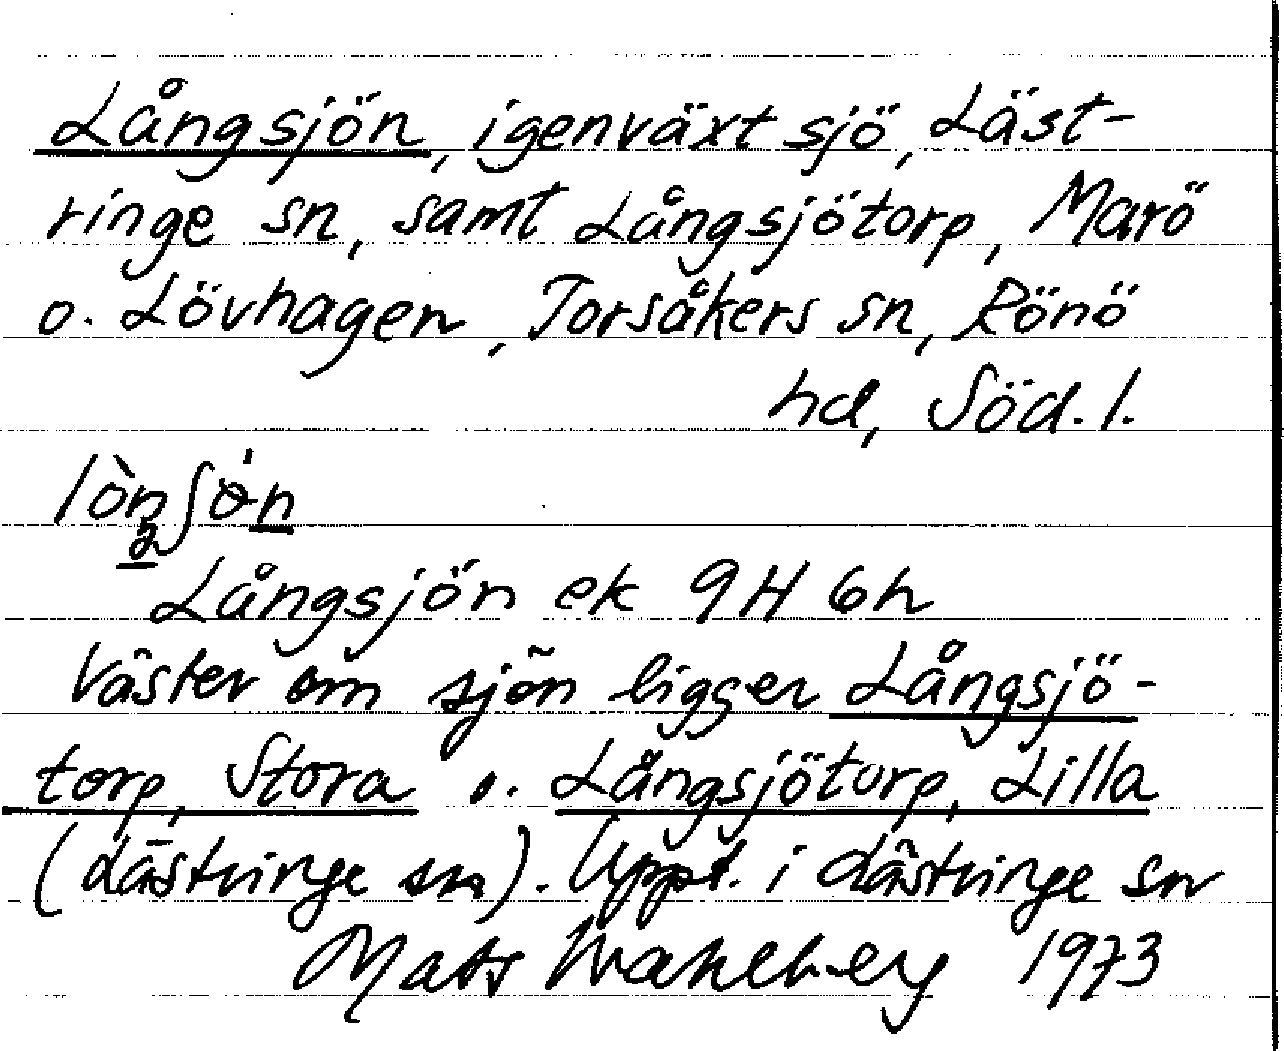 Långsjön, igenväxt sjö, Läst-
ringe sn, samt Långsjötorp, Marö
o. Lövhagen, Torsåkers sn, Rönö
hd, Söd. l.
Långsjön ek 9H 6h
Väster om sjön ligger Långsjö-
torp, Stora o. Långsjötorp, Lilla
(Lästringe sn). Uppt. i Lästringe sn
Mats Wahlberg 1973